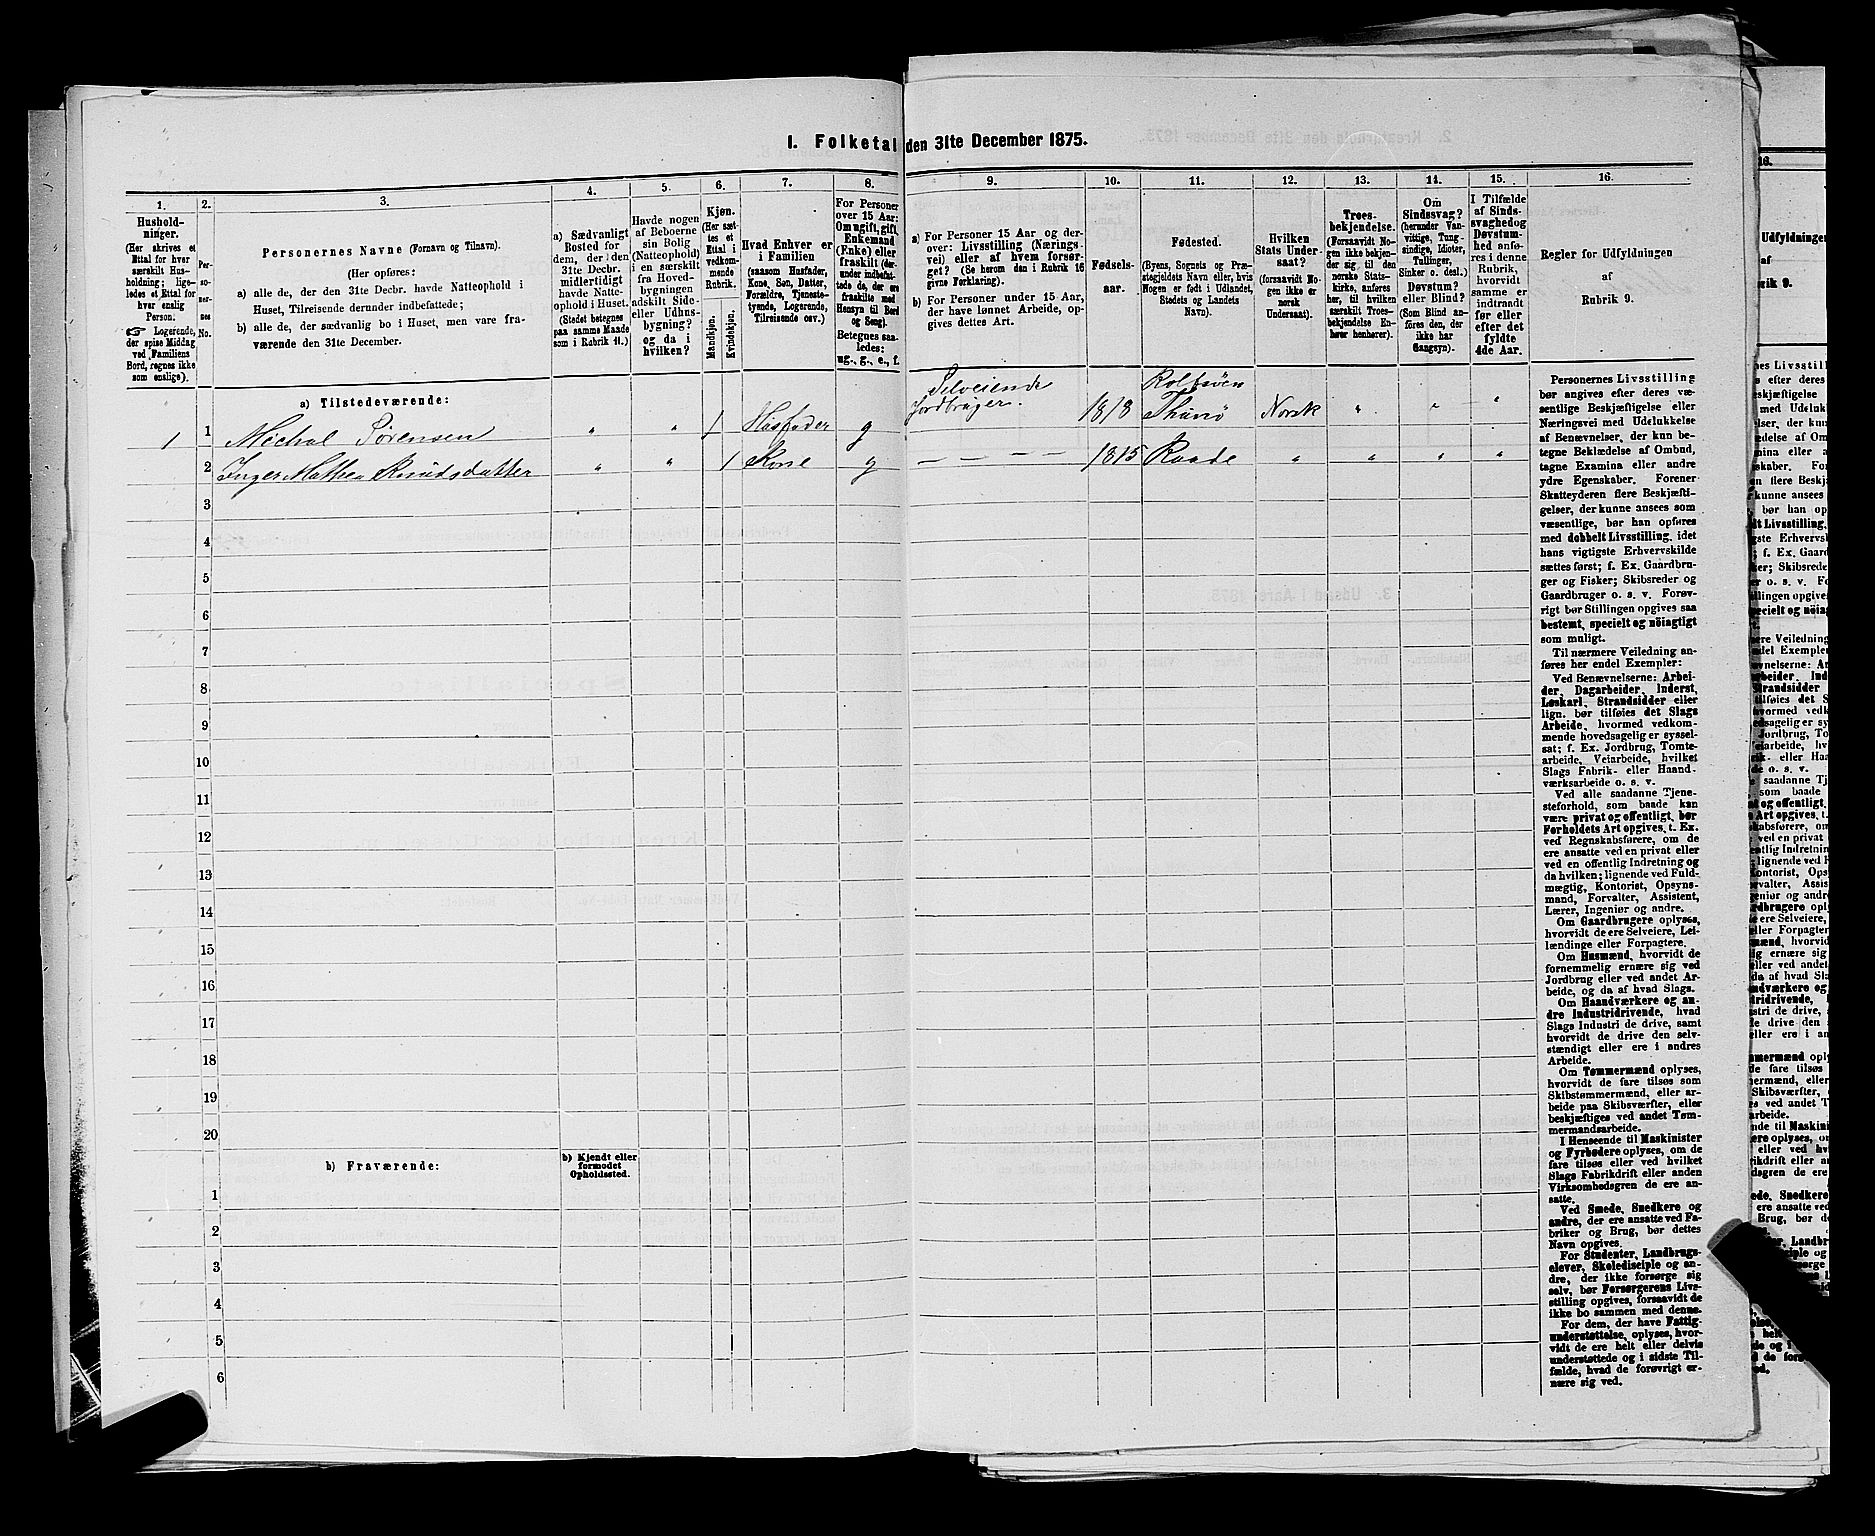 I. Folketal den 31te December 1875.
1.
Hushold-
ninger.
(Her skrives et
Ettal for hver
særskilt Hus-
holdning; lige-
ledes et Ettal for
hver enslig
Person.
☞ Logerende,
der spise Middag
ved Familiens
Bord, regnes ikke
som enslige).
2.
Per-
so-
ner-
nes
No.
3.
Personernes Navne (Fornavn og Tilnavn).
(Her opføres:
a) alle de, der den 31te Decbr. havde Natteophold i
Huset, Tilreisende derunder indbefattede;
b) alle de, der sædvanlig bo i Huset, men vare fra-
værende den 31te December.
4.
a) Sædvanligt
Bosted for
dem, der den
31te Decbr.
midlertidigt
havde Natte-
ophold i Huset.
(Stedet betegnes
paa samme Maade
som i Rubrik 11.)
5.
Havde nogen
af Beboerne
sin Bolig
(Natteophold)
i en særskilt
fra Hoved-
bygningen
adskilt Side-
eller Udhus-
bygning?
og da i
hvilken?
6.
Kjøn.
(Her sæt-
tes et
Ettal i
vedkom-
mende
Rubrik.
Mandkjøn.
Kvindekjøn.
7.
Hvad Enhver er
i Familien
(saasom Husfader,
Kone, Søn, Datter,
Forældre, Tjeneste-
tyende, Logerende,
Tilreisende osv.)
8.
For Personer
over 15 Aar:
Om ugift, gift,
Enkemand
(Enke) eller
fraskilt (der-
under indbefat-
tede de, der ere
fraskilte med
Hensyn til Bord
og Seng).
Betegnes saa-
ledes:
ug., g., e., f.
9.
a) For Personer 15 Aar og der-
over: Livsstilling (Nærings-
vei) eller af hvem forsør-
get? (Se herom den i Rubrik 16
givne Forklaring).
b) For Personer under 15 Aar,
der have lønnet Arbeide, op-
gives dettes Art.
10.
Fødsels-
aar.
11.
Fødested.
(Byens, Sognets og Præ-
stegjeldets Navn eller, hvis
Nogen er født i Udlandet,
Stedets og Landets
Navn).
12.
Hvilken
Stats Under-
saat?
(forsaavidt No-
gen ikke er
norsk
Undersaat).
13.
Troes-
bekjendelse.
(Forsaavidt No-
gen ikke bekjen-
der sig til den
norske Stats-
kirke, anføres
her, til hvilken
særskilt Troes-
bekjendelse En-
hver henhører).
14.
Om
Sindssvag?
(herunder Van-
vittige, Tung-
sindige, Idioter,
Tullinger,
Sinker o. desl.)
Døvstum?
eller Blind?
(Som Blind an-
føres den, der
ikke har
Gangsyn).
15.
I Tilfælde
af Sinds-
svaghed og
Døvstum-
hed anfø-
res i denne
Rubrik,
hvorvidt
samme er
indtraadt
før eller
efter det
fyldte
4de Aar.
16.
Regler for Udfyldningen
af
Rubrik 9.
a) Tilstedeværende:
1 1 Michal Sørensen " " 1 Husfader g Selveiende Jordbruger. 1818 Rolfsøen Thunø Norsk " " "
2 Inger Mathea Knudsdatter " " 1 Kone g — — — — 1815 Raade " " " "
3
4
5
6
7
8
9
10
11
12
13
14
15
16
17
18
19
20
b) Fraværende:
b) Kjendt eller
formodet
Opholdssted.
1
2
3
4
5
6
Personernes Livsstilling
bør angives efter deres væ-
sentlige Beskjæftigelse eller
Næringsvei med Udelukkelse
af Benævnelser, der kun be-
tegne Beklædelse af Ombud,
tagne Examina eller andre
ydre Egenskaber. Forener
Skatteyderen flere Beskjæfti-
gelser, der kunne ansees som
væsentlige, bør han opføres
med dobbelt Livsstilling, idet
hans vigtigste Erhvervskilde
sættes først; f. Ex. Gaardbru-
ger og Fisker; Skibsreder og
Gaardbruger o. s. v. Forøv-
rigt bør Stillingen opgives saa
bestemt, specielt og nöiagtigt
som muligt.
Til nærmere Veiledning an-
føres her endel Exempler:
Ved Benævnelserne: Arbei-
der, Dagarbeider, Inderst,
Løskarl, Strandsidder eller
lign. bør tilføies det Slags
Arbeide, hvormed vedkom-
mende hovedsagelig er syssel-
sat; f. Ex. Jordbrug, Tomte-
arbeide, Veiarbeide, hvilket
Slags Fabrik- eller Haand-
værksarbeide o. s. v.
Ved alle saadanne Tjene-
steforhold, som baade kan
være privat og offentligt, bør
Forholdets Art opgives, t. Ex.
ved Regnskabsførere, om de
ere ansatte ved en privat eller
ved en offentlig Indretning og
da hvilken; lignende ved Fuld-
mægtig, Kontorist, Opsyns-
mand, Forvalter, Assistent,
Lærer, Ingeniør og andre.
Om Gaardbrugere oplyses,
hvorvidt de ere Selveiere, Lei-
lændinge eller Forpagtere.
Om Husmænd, hvorvidt de
fornemmelig ernære sig ved
Jordbrug eller ved andet Ar-
beide, og da af hvad Slags.
Om Haandværkere og an-
dre Industridrivende, hvad
Slags Industri de drive, samt
hvorvidt de drive den selv-
stændigt eller ere i andres
Arbeide.
Om Tømmermænd oplyses,
hvorvidt de fare tilsøs som
Skibstømmermænd, eller ar-
beide paa Skibsværfter, eller
beskjæftiges ved andet Tøm-
mermandsarbeide.
I Henseende til Maskinister
og Fyrbødere oplyses, om de
fare tilsøs eller ved hvilket
Slags Fabrikdrift eller anden
Virksombedsgren de ere an-
satte.
Ved Smede, Snedkere og
andre, der ere ansatte ved Fa-
briker og Brug, bør dettes
Navn opgives.
For Studenter, Landbrugs-
elever, Skoledisciple og an-
dre, der ikke forsørge sig
selv, bør Forsørgerens Livs-
stilling opgives, forsaavidt de
ikke bo sammen med denne.
For dem, der have Fattig-
understøttelse, oplyses, hvor-
vidt de ere helt eller delvis
understøttede og i sidste Til-
fælde, hvad de forøvrigt er-
nære sig ved.